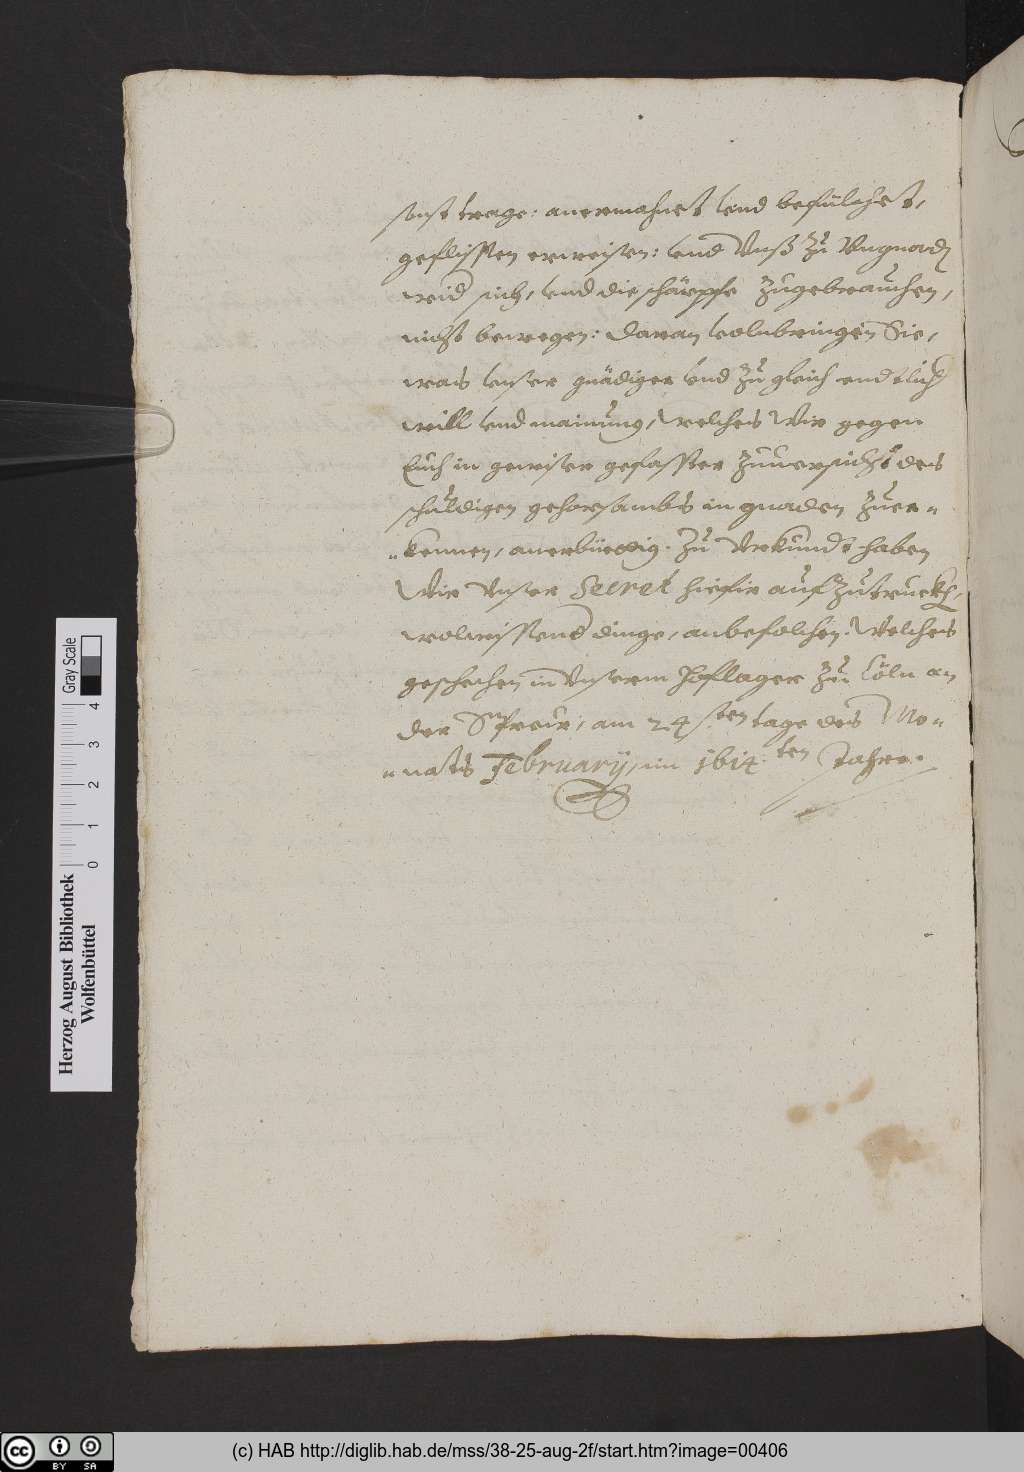 sonst trage: anermahnet vnd befülchet,
geflissen erweisen: vnd Vnß zu Vngnad
wid sich, vnd die schärpffe zugebrauchen,
nicht bewegen: daran volnbringen Sie,
was vnser gnädiger vnd zu gleich endtlich
will vnd mainung, welches Wir gegen
Euch in gewiser gefasster zuuersicht des
schuldigen gehorsambs in gnaden zuer-
-kennen, anerbüettig. Zu Vrkundt haben
Wir Vnser Secret hiefür aufzutruckh,
wolwissend dinge, anbefolchen. Welches
geschehen in Vnserm Hoflager zu Cöln an
der Sprew, am 24sten tage des Mo-
-nats February, im 1614.ten Jahre.
Herzog August Bibliothek
Wolfenbüttel
Gray Scale
0 1 2 3 4
cc BY SA
(c) HAB http://diglib.hab.de/mss/38-25-aug-2f/start.htm?image=00406